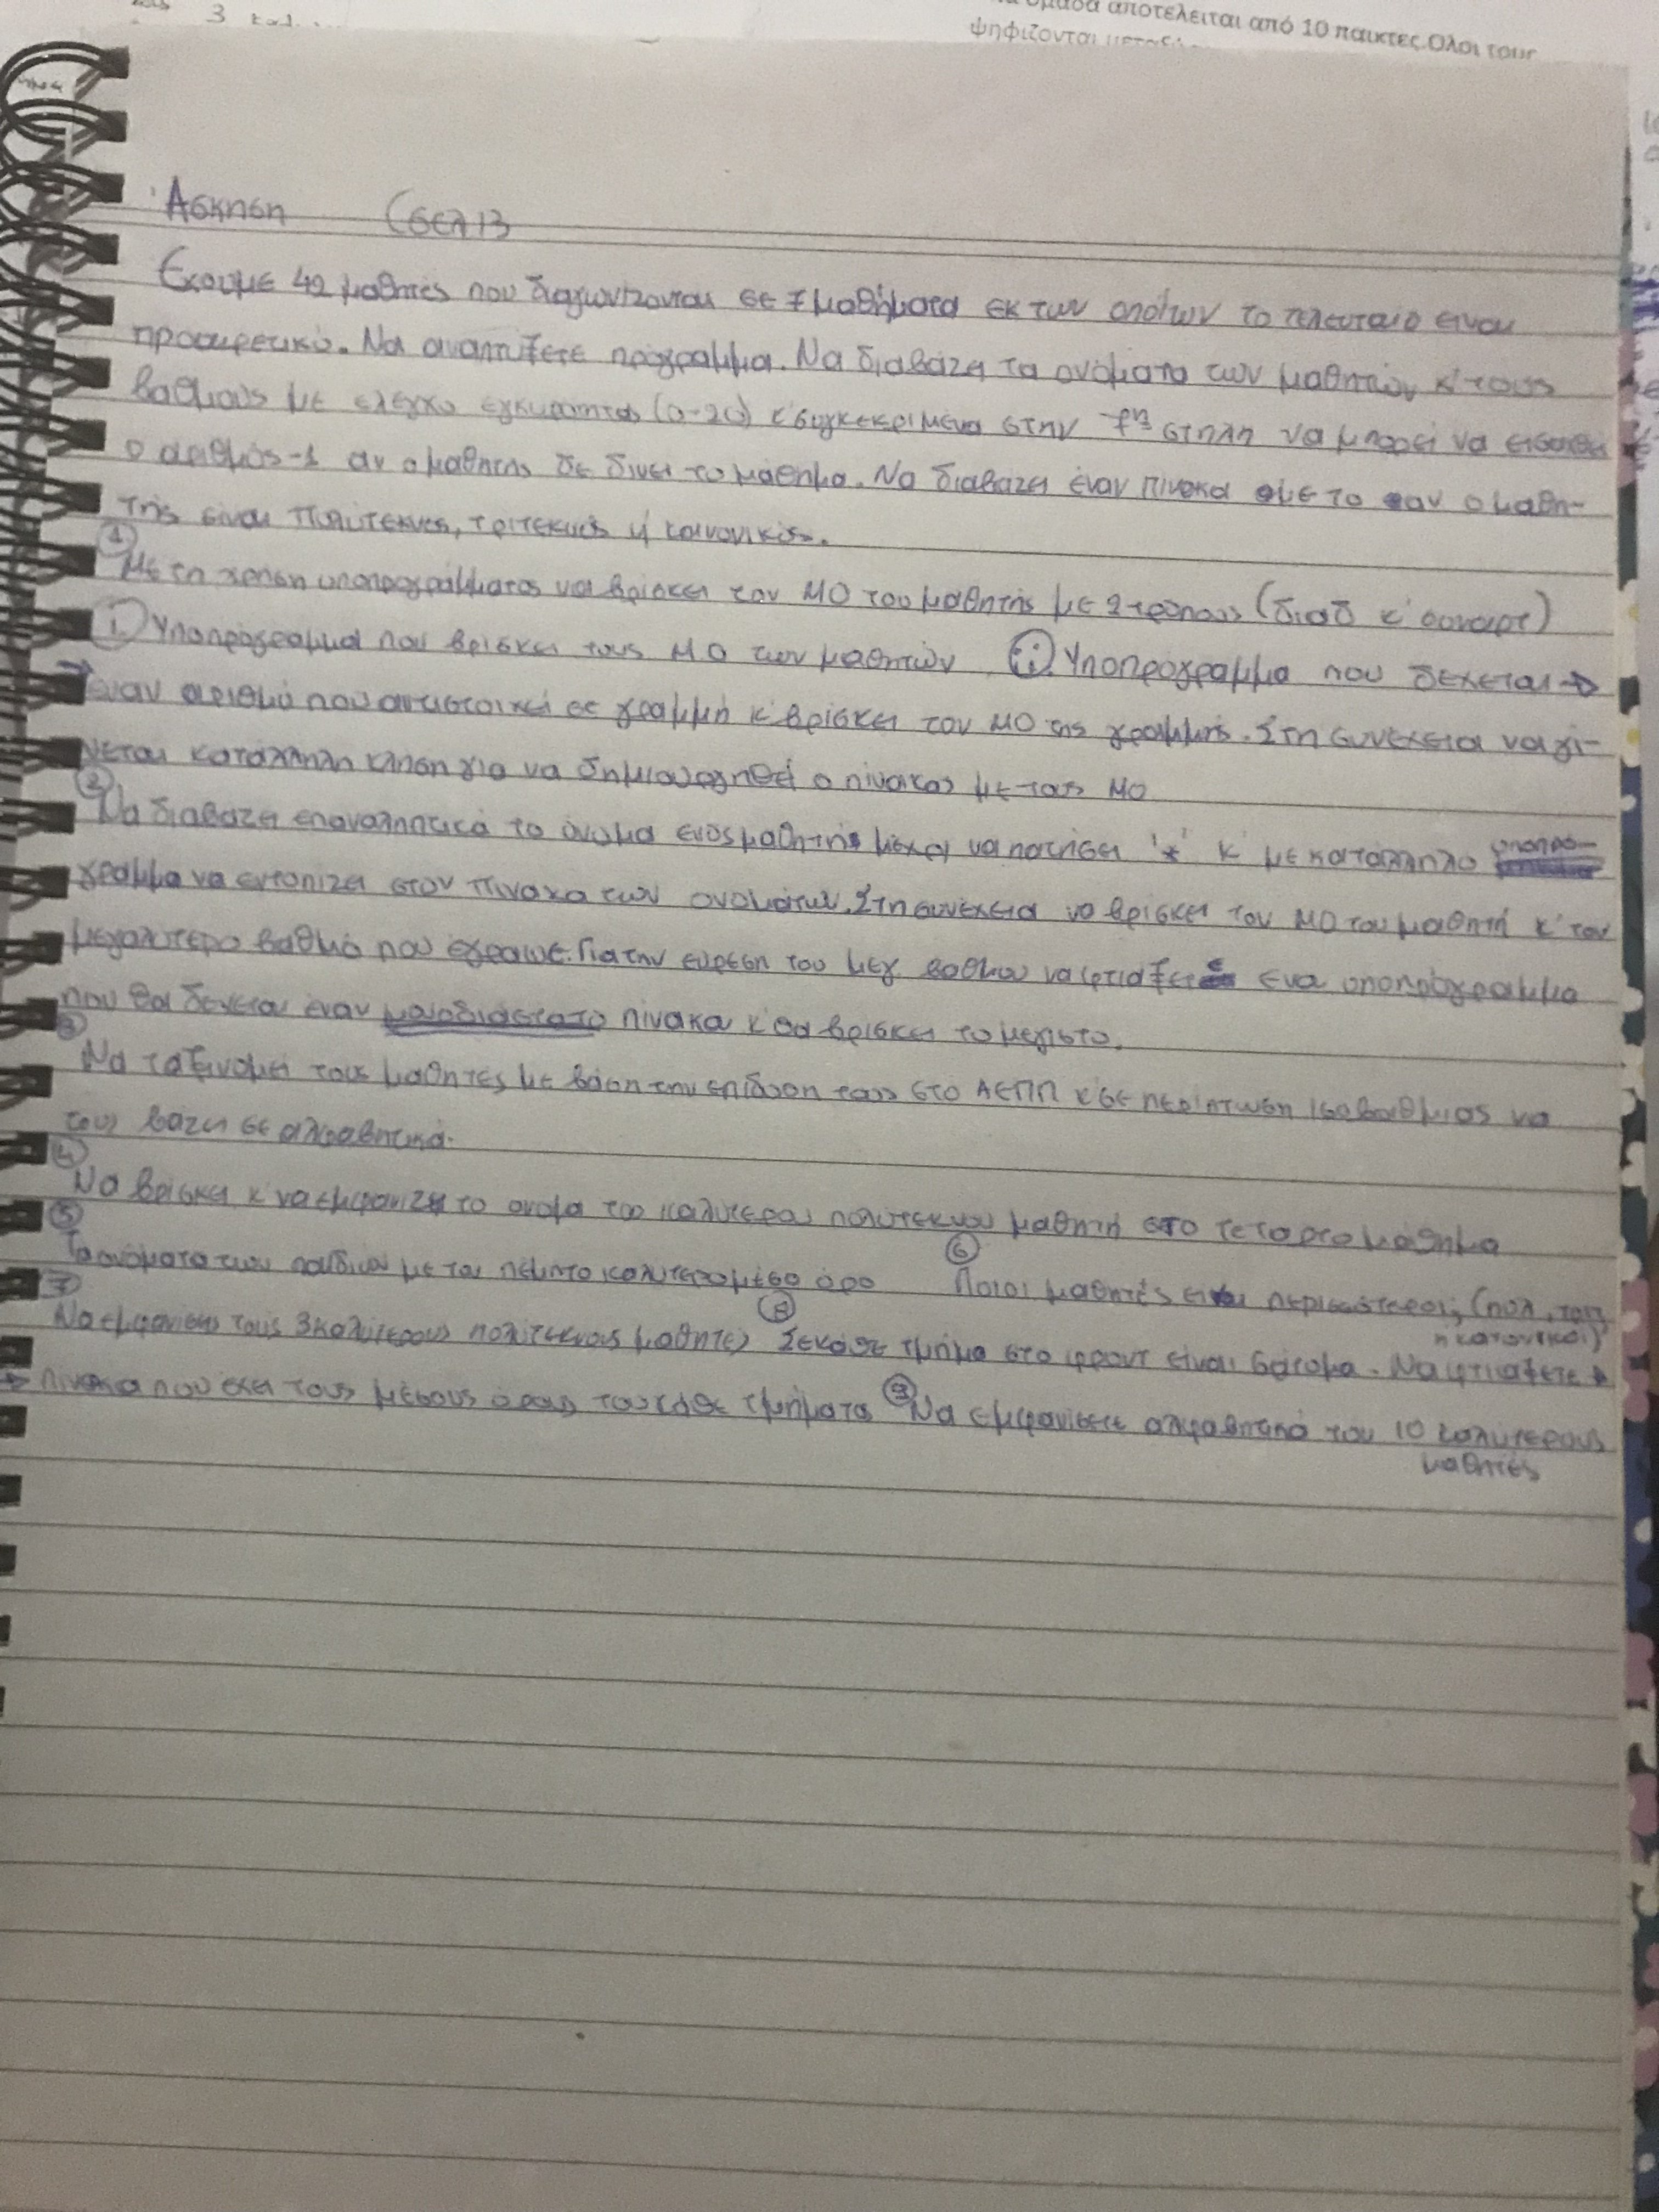 3
ομάδα αποτελείται από 10 παικτες.Ολοι τους
ψηφιζονται μεταξύ
Άσκηση (σελ 13
Εχουμε 42 μαθητές που διαγωνιζονται σε 7 μαθήματα εκ των οποίων το τελευταίο είναι
προαιρετικό. Να αναπτύξετε πρόγραμμα. Να διαβάζει τα ονόματα των μαθητών κ' τους
βαθμούς με ελεγχο εγκυρότητας (0-20) κ' συγκεκριμένα στην 7η στηλη να μπορεί να εισαχθεί
ο αριθμός -1 αν ο μαθητής δε δινει το μάθημα. Να διαβαζει έναν πίνακα με το αν ο μαθη-
τής είναι πολύτεκνος, τριτεκνος ή κανονικός.
① Με τη χρηση υποπρογράμματος να βρίσκει τον ΜΟ του μαθητής με 2 τρόπους (διαδ κ' συναρτ)
i. Υποπρόγραμμα που βρίσκει τους Μ.Ο των μαθητών ii. Υποπρόγραμμα που δέχεται →
→ έναν αριθμό που αντιστοιχεί σε γραμμή κ' βρίσκει τον ΜΟ της γραμμής. Στη συνέχεια να γί-
νεται κατάλληλη κλήση για να δημιουργηθεί ο πίνακας με τους ΜΟ
② Να διαβαζει επαναληπτικά το όνομα ενός μαθητής μέχρι να πατήσει '*' κ' με κατάλληλο υποπρό-
γραμμα να εντοπιζει στον πινακα των ονομάτων. Στη συνέχεια να βρίσκει τον ΜΟ του μαθητή κ' τον
μεγαλύτερο βαθμό που έγραψε. Για την εύρεση του μεγ. βαθμου να φτιάξετε ενα υποπρόγραμμα
που θα δέχεται έναν μονοδιάστατο πίνακα κ' θα βρίσκει το μεγιστο.
③ Να ταξινομεί τους μαθητές με βάση την επίδοση τους στο ΑΕΠΠ κ' σε περίπτωση ισοβαθμιας να
τους βαζει σε αλφαβητικά.
④ Να βρίσκει κ' να εμφανιζει το ονομα του καλυτερου πολύτεκνου μαθητή στο τεταρτο μάθημα
⑤ Τα ονόματα των παιδιών με τον πέμπτο καλυτερο μέσο όρο ⑥ Ποιοι μαθητές είναι περισσότεροι; (πολ, τριτ,
η κανονικοι)
⑦ Να εμφανίσεις τους 3 καλύτερους πολύτεκνους μαθητές ⑧ Σε κάθε τμήμα στο φροντ είναι 6 άτομα. Να φτιάξετε →
→ πίνακα που έχει τους μέσους όρους του κάθε τμήματα ⑨ Να εμφανίσετε αλφαβητικά του 10 καλύτερους
μαθητές